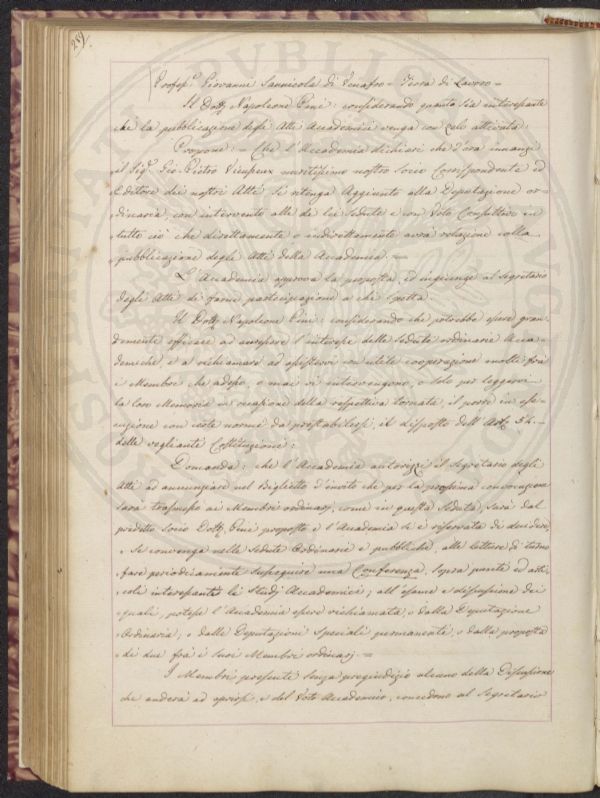 Profess.e Giovanni Sannicola di Venafro = Terra di Lavoro =
Il Dott. Napoleone Pini: considerando quanto sia interessante
che la pubblicazione degli Atti Accademici venga con zelo attivata:
Propone: = Che l'Accademia dichiari che d'ora innanzi
il Sig.e Gio: Pietro Vieusseux meritissimo nostro Socio Corrispondente ed
Editore dei nostri Atti si ritenga Aggiunto alla Deputazione or=
=dinaria, con intervento alle di lei Sedute e con Voto Consultivo in
tutto ciò che direttamente o indirettamente avrà relazione colla
pubblicazione degli Atti della Accademia. =
L'Accademia approva la proposta, ed ingiunge al Segretario
degli Atti di farne partecipazione a chi spetta.
Il Dott. Napoleone Pini: considerando che potrebbe essere gran=
demente efficace ad accrescere l'interesse delle Sedute ordinarie Acca=
demiche, e a richiamare ad assistervi con utile cooperazione molti fra
i Membri che adesso, o mai vi intervengono, o solo per leggervi
la loro Memoria in occasione della respettiva tornata, il porre in ese=
cuzione con certe norme da prestabilirsi, il disposto dell'Art. 54.=
delle veglianti Costituzioni:
Domanda: che l'Accademia autorizzi il Segretario degli
Atti ad annunziare nel Biglietto d'invito che per la prossima convocazione
sarà trasmesso ai Membri ordinarj, come in questa Seduta, sarà dal
predetto Socio Dott. Pini proposto e l'Accademia si è riservata di decidere,
" Se convenga nelle Sedute Ordinarie e pubbliche, alle letture di turno
" fare periodicamente susseguire una Conferenza, sopra punti ed arti=
" coli interessanti li Studj Accademici; all'esame e discussione dei
" quali, potesse l'Accademia essere richiamata, o dalla Deputazione
" Ordinaria, o dalle Deputazioni Speciali permanenti, o dalla proposta
" di due fra i suoi Membri ordinarj. =
I Membri presenti senza pregiudizio alcuno della Discussione
che anderà ad aprirsi, e del Voto Accademico, concedono al Segretario